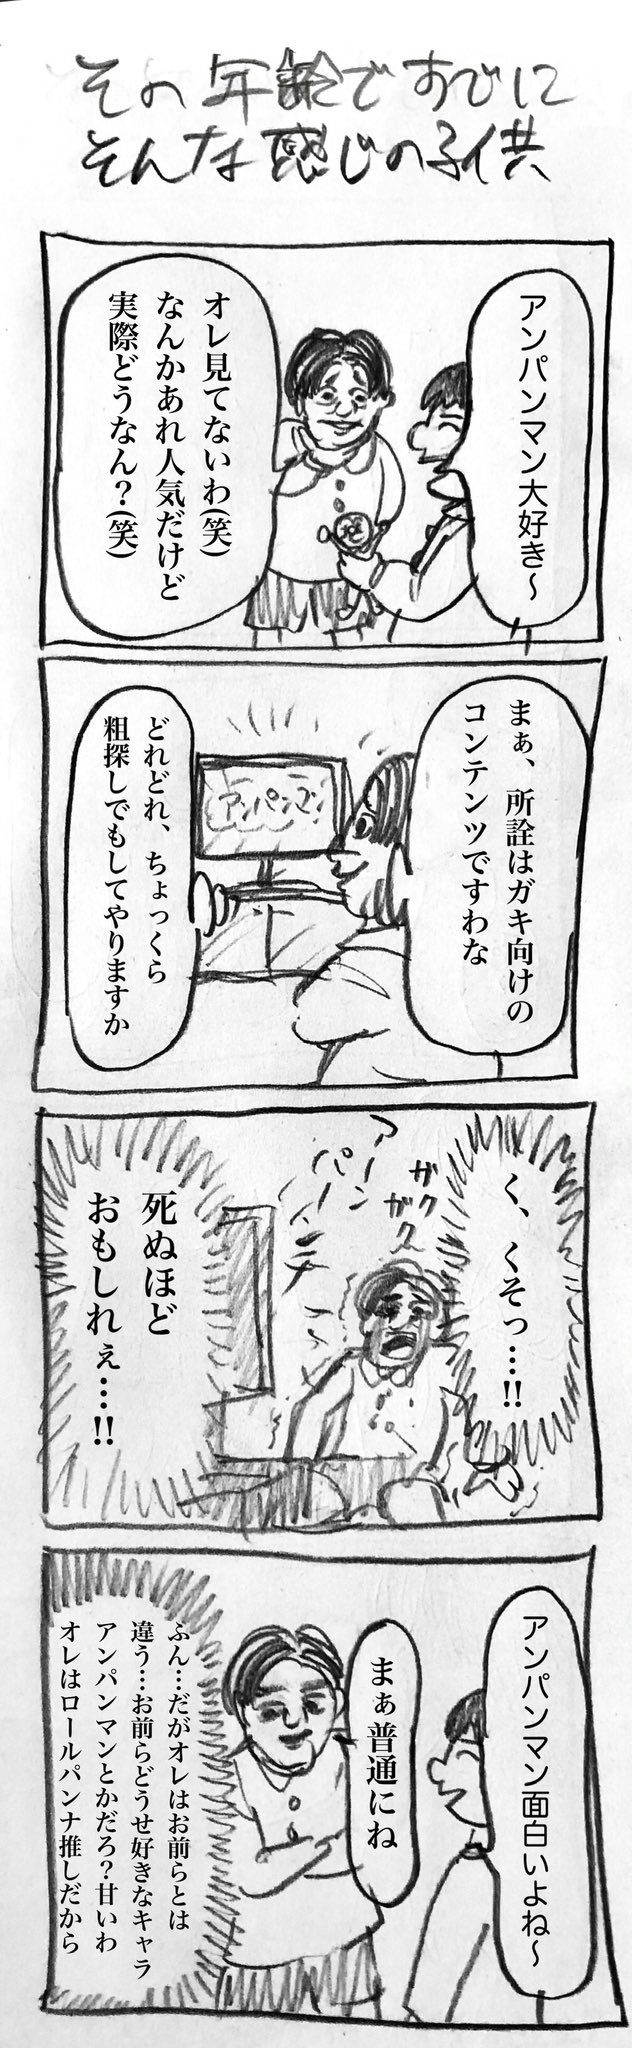 その年齢ですでに
そんな感じの子供
アンパンマン大好き～
オレ見てないわ(笑)
なんかあれ人気だけど
実際どうなん？(笑)
まぁ、所詮はガキ向けの
コンテンツですわな
アンパンマン
どれどれ、ちょっくら
粗探しでもしてやりますか
く、くそっ…!!
ガク
ガク
アーン
パーンチ
死ぬほど
おもしれぇ…!!
アンパンマン面白いよね～
まぁ普通にね
ふん…だがオレはお前らとは
違う…お前らどうせ好きなキャラ
アンパンマンとかだろ？甘いわ
オレはロールパンナ推しだから